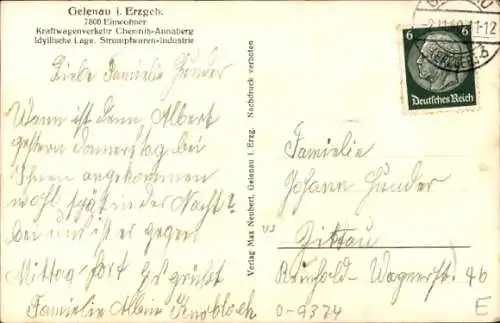 Gelenau i. Erzgeb.
7800 Einwohner
Kraftwagenverkehr Chemnitz-Annaberg
Idyllische Lage. Strumpfwaren-Industrie
Liebe Famielie Hunder
Wenn ist denn Albert
gestern Donnerstag bei
Ihnen angekommen
wohl spät in der Nacht?
bei uns ist er gegen
Mittag fort Es grüßt
Famielie Albin Knobloch
Verlag Max Neubert, Gelenau i. Erzg. Nachdruck verboten
6 6
Deutsches Reich
11-12
Famielie
Johann Hunder
Zittau
Reinhold-Wagnerstr. 46
0-9374
E